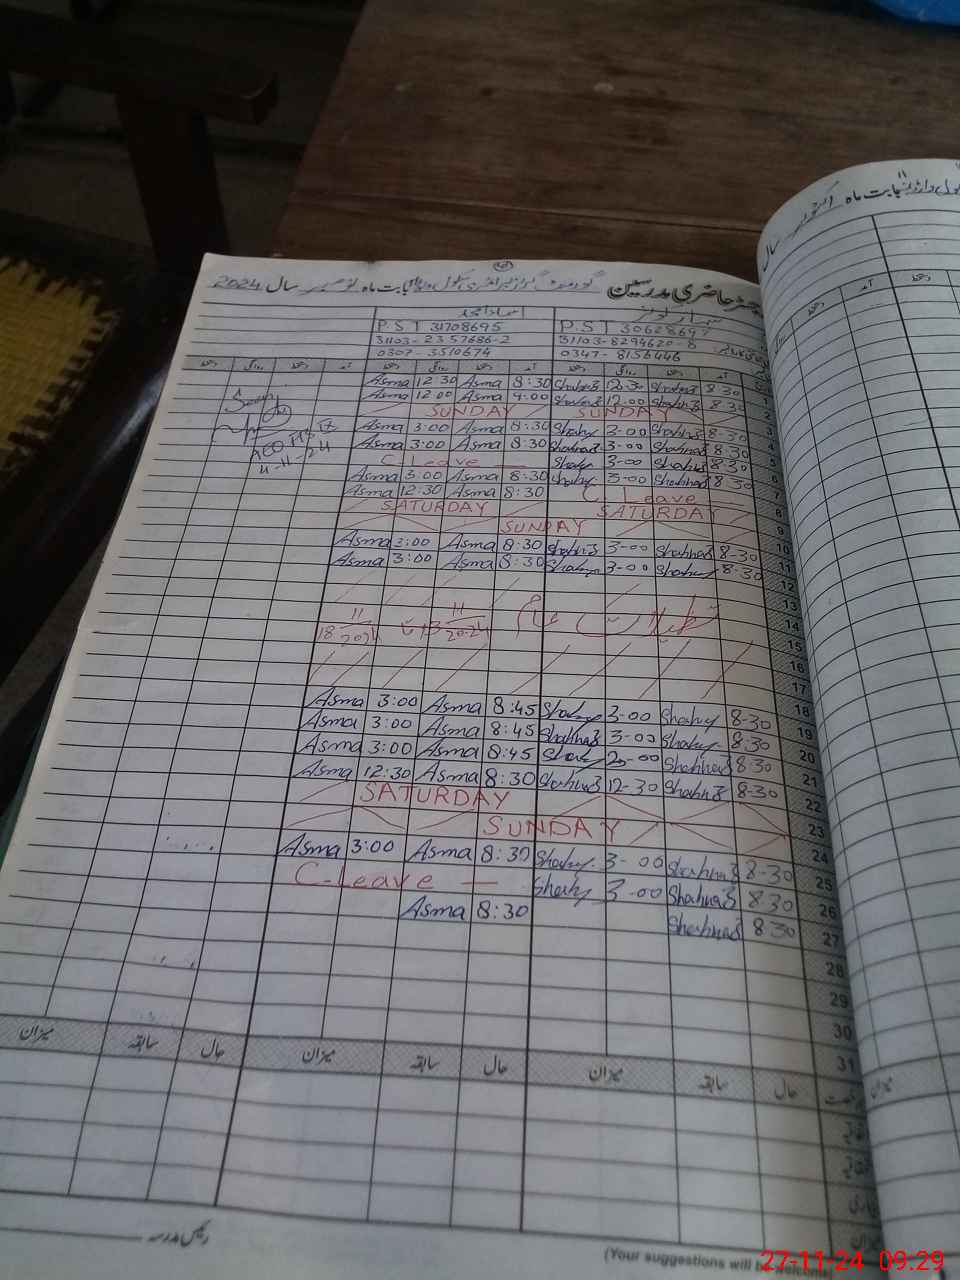 رجسٹر حاضری مدرسین گورنمنٹ گرلز پرائمری سکول بابت ماہ نومبر سال 2024
بابت ماہ اکتوبر سال
P.S.T 31708695 P.S.T 30628697
31103-2357686-2 31103-8294620-8
0307-3510674 0347-8156446
دستخط روانگی دستخط آمد دستخط روانگی دستخط آمد دستخط روانگی دستخط آمد
Asma 12:30 Asma 8:30 Shahnaz 12.30 Shahnaz 8-30 1
Asma 12:00 Asma 9:00 Shahnaz 12.00 Shahnaz 8-30 2
SUNDAY SUNDAY 3
Asma 3:00 Asma 8:30 Shahnaz 3-00 Shahnaz 8-30 4
Asma 3:00 Asma 8:30 Shahnaz 3-00 Shahnaz 8-30 5
C Leave — Shahnaz 3-00 Shahnaz 8-30 6
Asma 3:00 Asma 8:30 Shahnaz 3-00 Shahnaz 8-30 7
Asma 12:30 Asma 8:30 C Leave 8
SATURDAY SATURDAY 9
SUNDAY 10
Asma 3:00 Asma 8:30 Shahnaz 3-00 Shahnaz 8-30 11
Asma 3:00 Asma 8:30 Shahnaz 3-00 Shahnaz 8-30 12
4-11-24
13
14
تعطیلات 13 11/2024 تا 18 11/2024
15
16
17
Asma 3:00 Asma 8:45 Shahnaz 3-00 Shahnaz 8-30 18
Asma 3:00 Asma 8:45 Shahnaz 3-00 Shahnaz 8-30 19
Asma 3:00 Asma 8:45 Shahnaz Shahnaz 8-30 20
Asma 12:30 Asma 8:30 Shahnaz 12-30 Shahnaz 8-30 21
SATURDAY 22
SUNDAY 23
Asma 3:00 Asma 8:30 Shahnaz 3-00 Shahnaz 8-30 24
C-Leave — Shahnaz 3-00 Shahnaz 8-30 25
Asma 8:30 Shahnaz 8-30 26
27
28
29
30
31
میزان سابقہ حال میزان سابقہ حال میزان سابقہ حال
میزان
رئیس مدرسہ
(Your suggestions will be welcome
27-11-24 09:29